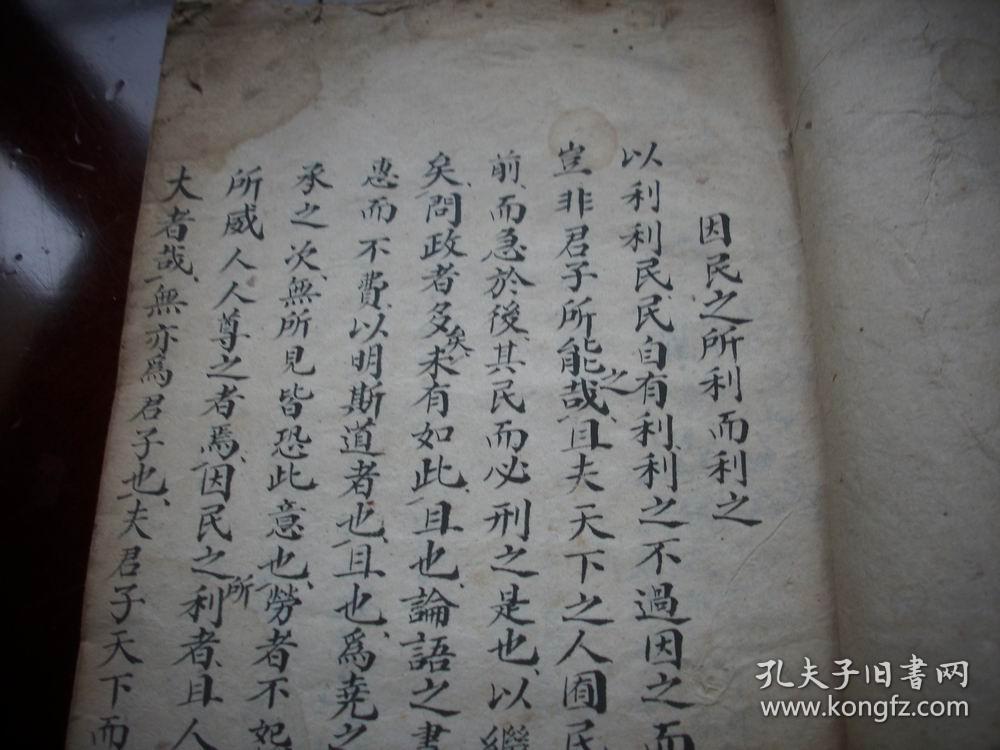 因民之所利而利之
以利利民民自有利、利之不過因之而
豈非君子所能哉之、且夫天下之人囿民
前、而急於後、其民而必刑之是也、以繼
矣、問政者多矣、未有如此、且也、論語之書
惠而不費、以明斯道者也、且也、爲堯之
承之次、無所見皆恐此意也、勞者不
所威人人尊之者焉、因民之所利者、且人
大者哉、無亦爲君子也、夫君子天下而
孔夫子旧書网
www.kongfz.com